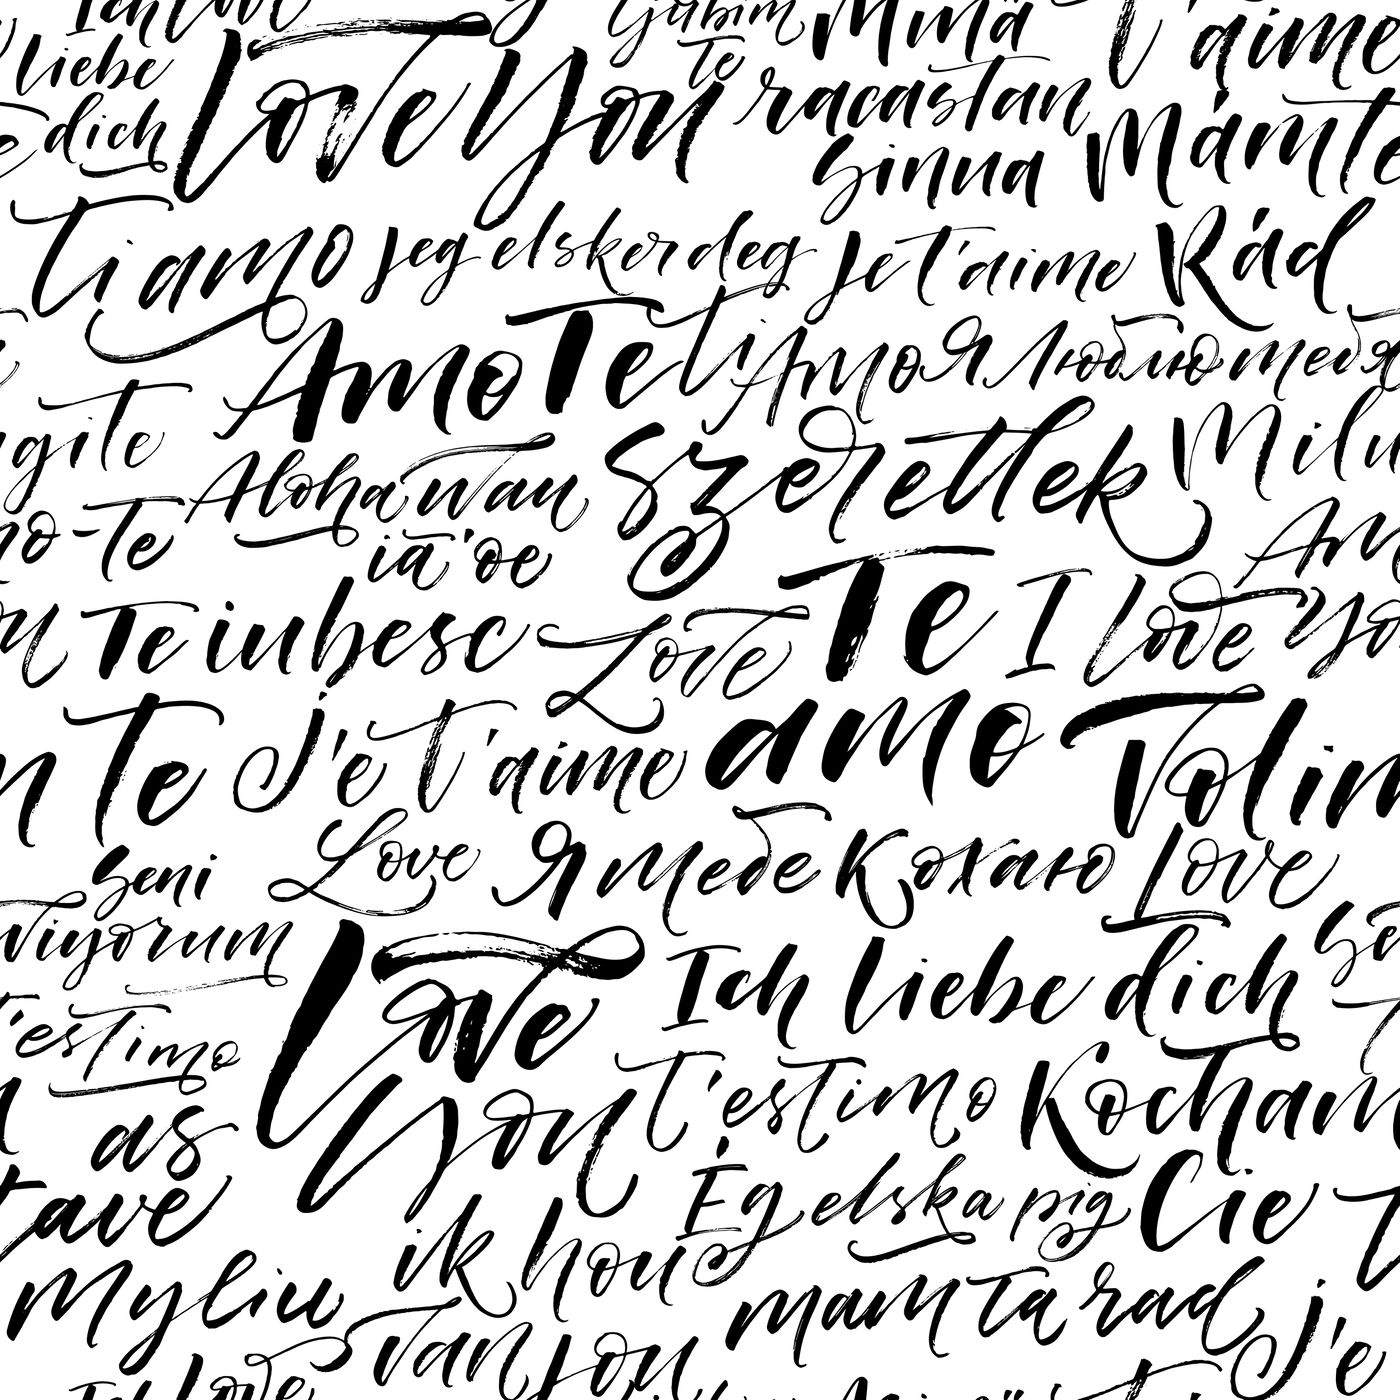 liebe
dich
Love you
Ljubim
te
Minä
racastan
sinua
t'aime
Mám tě
Ti amo
Jeg elsker deg
Je t'aime
Rád
Amo Te
ti Amo
Я люблю тебя
Aloha wau
iā 'oe
Szeretlek
Milu
Te iubesc
Love
Te
amo
I love yo
n te
j'e t'aime
Volim
Seni
viyorum
Love
Я тебе кохаю
Love
Love
you
Ich liebe dich
t'estimo
t'estimo
Kocham
Cie
as
tave
Myliu
Ég elska þig
ik hou
van jou
mam ta rad
j'e